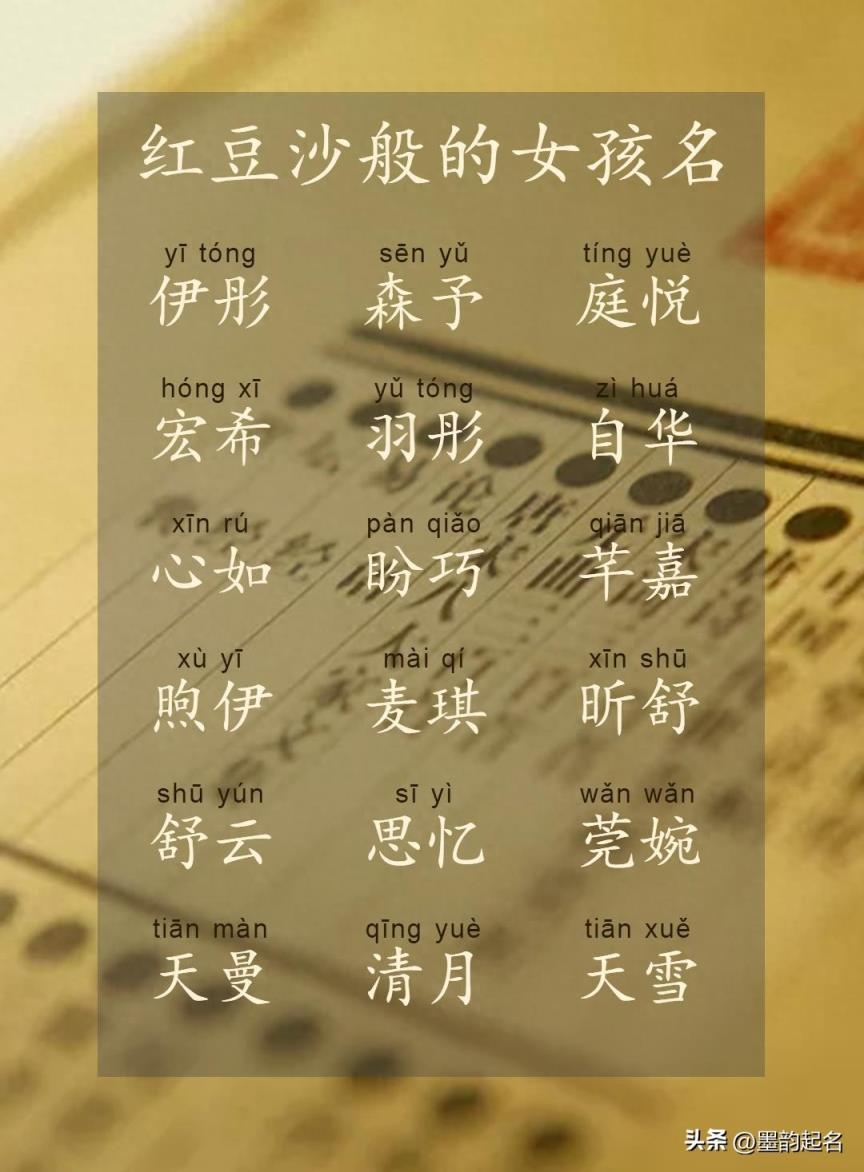 红豆沙般的女孩名
yī tóng sēn yǔ tíng yuè
伊彤 森予 庭悦
hóng xī yǔ tóng zì huá
宏希 羽彤 自华
xīn rú pàn qiǎo qiān jiā
心如 盼巧 芊嘉
xù yī mài qí xīn shū
煦伊 麦琪 昕舒
shū yún sī yì wǎn wǎn
舒云 思忆 莞婉
tiān màn qīng yuè tiān xuě
天曼 清月 天雪
头条 @墨韵起名